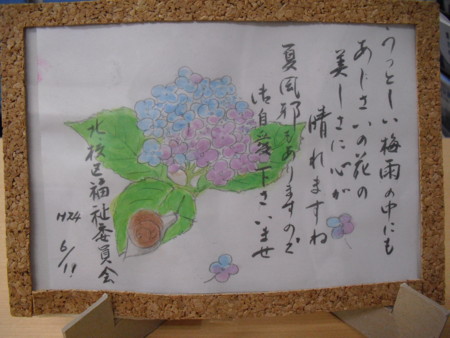 うっとしい梅雨の中にも
あじさいの花の
美しさに心が
晴れますね
夏風邪もありますので
御自愛下さいませ
北校区福祉委員会
H24
6/11